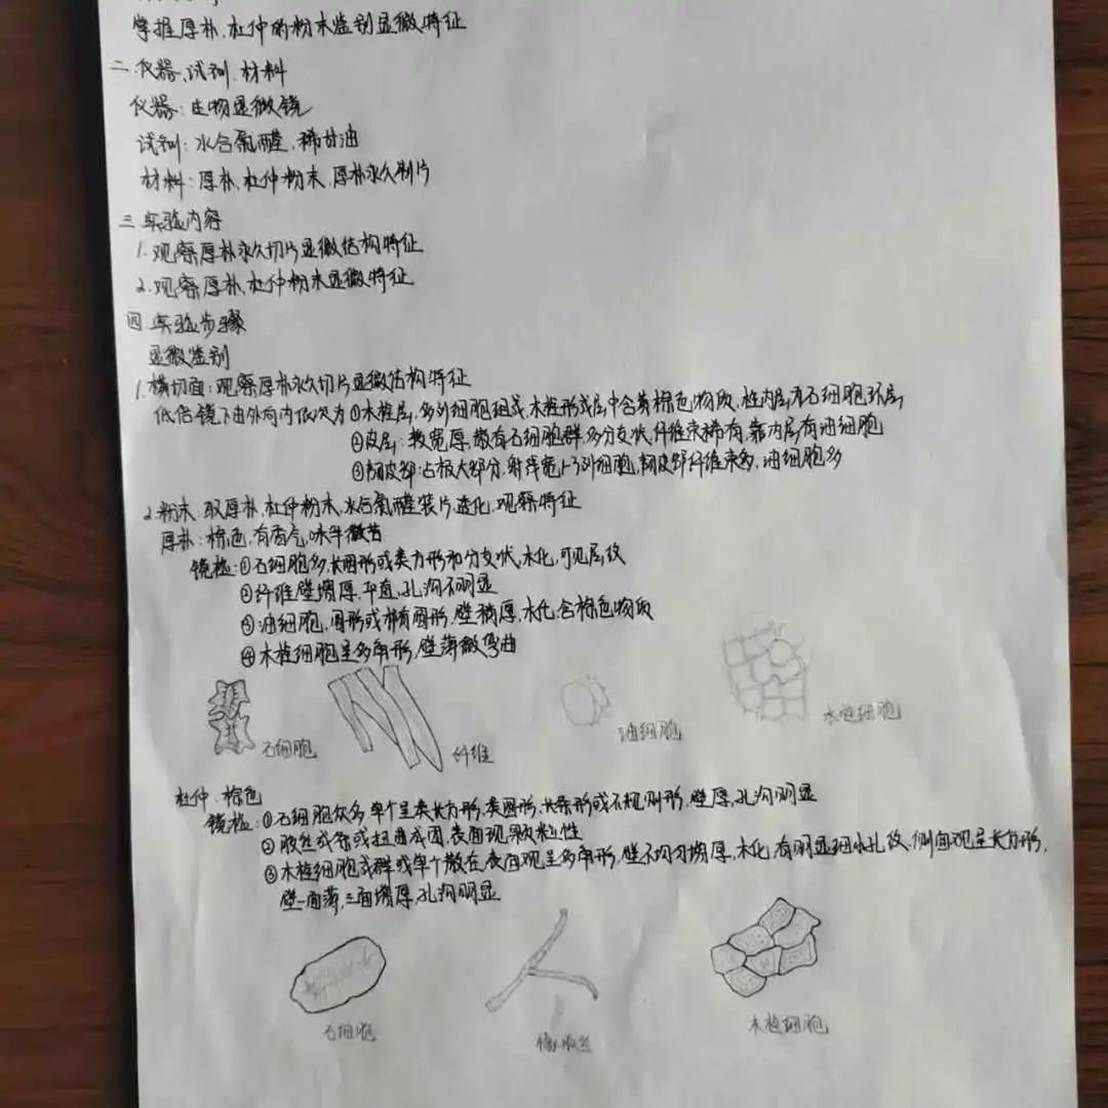 掌握厚朴、杜仲的粉末鉴别显微特征
二.仪器、试剂、材料
仪器:生物显微镜
试剂:水合氯醛、稀甘油
材料:厚朴、杜仲粉末、厚朴永久制片
三.实验内容
1.观察厚朴永久切片显微结构特征
2.观察厚朴、杜仲粉末显微特征
四.实验步骤
显微鉴别
1.横切面:观察厚朴永久切片显微结构特征
低倍镜下由外向内依次为①木栓层,多列细胞组成,木栓形成层中含黄棕色物质,栓内层有石细胞环层
②皮层:较宽厚,散有石细胞群,多分支状,纤维束稀有,靠内层有油细胞
③韧皮部:占极大部分,射线宽1-3列细胞,韧皮部纤维束多,油细胞多
2.粉末:取厚朴、杜仲粉末,水合氯醛装片透化,观察特征
厚朴:棕色,有香气,味辛微苦
镜检:①石细胞多,长圆形或类方形和分支状,木化,可见层纹
②纤维壁增厚,平直,孔沟不明显
③油细胞,圆形或椭圆形,壁稍厚,木化,含棕色物质
④木栓细胞呈多角形,壁薄微弯曲
石细胞 纤维 油细胞 木栓细胞
杜仲:棕色
镜检:①石细胞众多,单个呈类长方形,类圆形,长条形或不规则形,壁厚,孔沟明显
②胶丝成条或扭曲成团,表面现颗粒性
③木栓细胞成群或单个散在,表面观呈多角形,壁不均匀增厚,木化,有明显细小孔纹,侧面观呈长方形,
壁一面薄,三面增厚,孔沟明显
石细胞 橡胶丝 木栓细胞